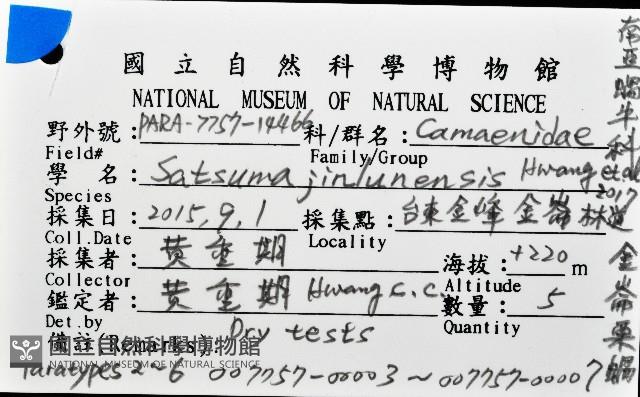 國立自然科學博物館
NATIONAL MUSEUM OF NATURAL SCIENCE
野外號：PARA-7757-14466 科/群名：Camaenidae
Field# Family/Group
學名：Satsuma jinlunensis Hwang et al 2017
Species
採集日：2015,9,1 採集點：台東金峰金崙林道
Coll.Date Locality
採集者：黄重期 海拔：+220 m
Collector Altitude
鑑定者：黄重期 Hwang C.C. 數量：5
Det.by Quantity
備註 Remarks): Dry tests
國立自然科學博物館
NATIONAL MUSEUM OF NATURAL SCIENCE
Paratypes 2~6 007757-00003~007757-00007
南亞蝸牛科 金崙栗蝸